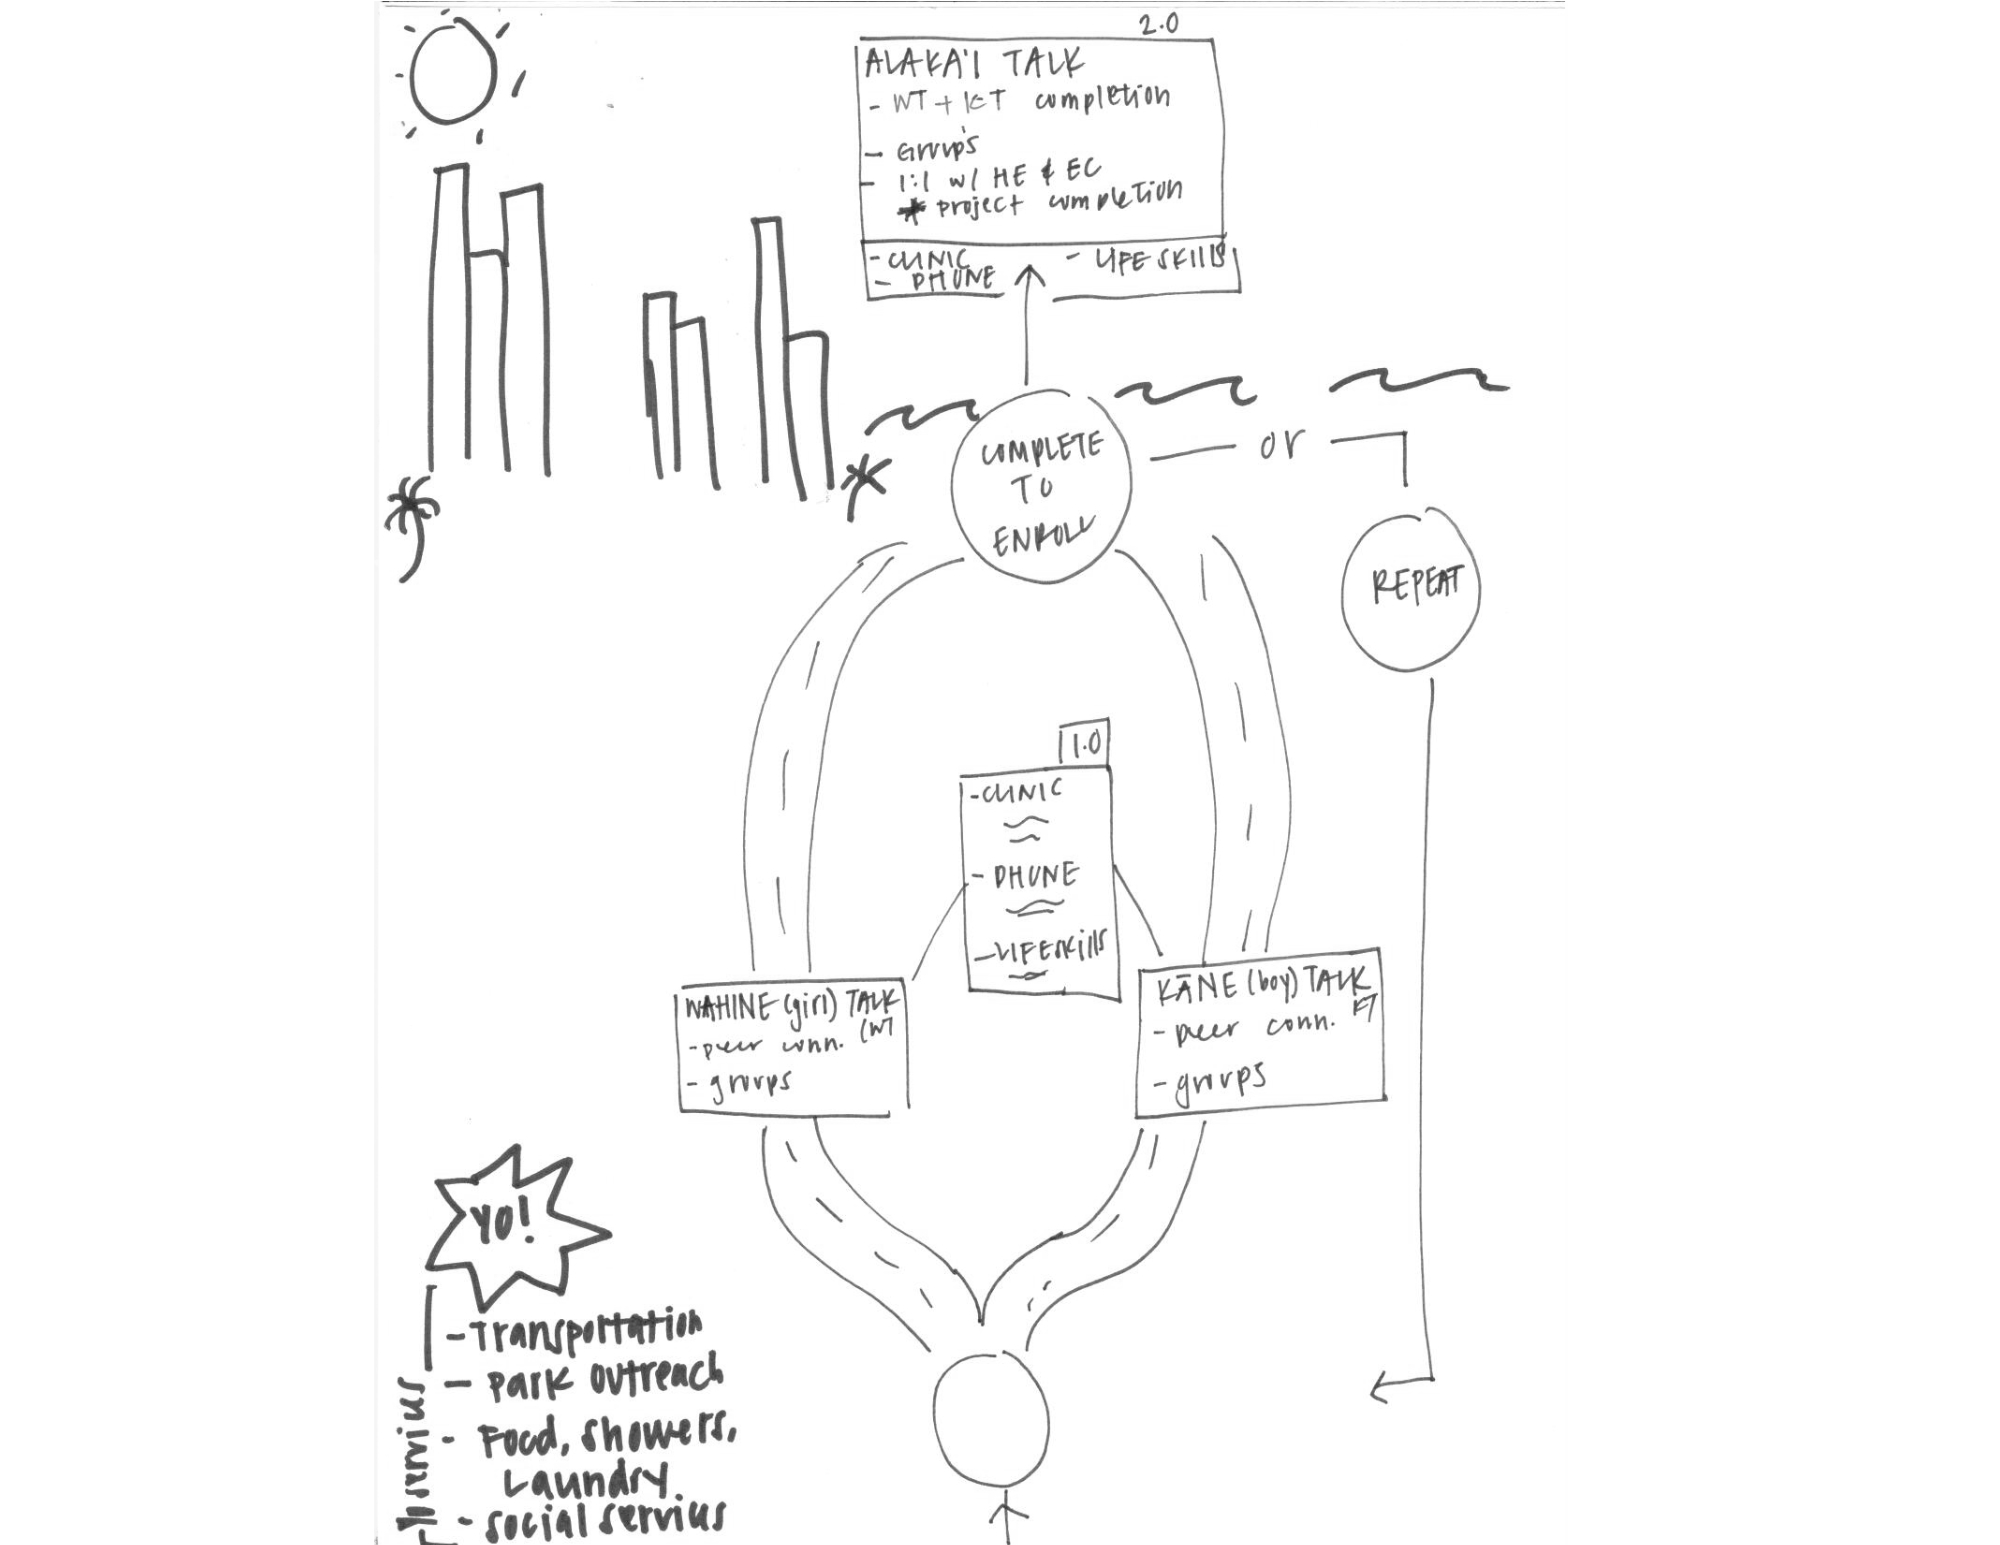 2.0
ALAKA'I TALK
- WT + KT completion
- Group's
- 1:1 w/ HE & EC
* project completion
- CLINIC
- PHONE
- LIFE SKILLS
COMPLETE
TO
ENROLL
or
REPEAT
1.0
- CLINIC
- PHONE
- LIFESKILLS
WAHINE (girl) TALK
(WT
- peer conn.
- groups
KĀNE (boy) TALK
KT
- peer conn.
- groups
YO!
- Transportation
- Park outreach
- Food, showers,
Laundry
- social services